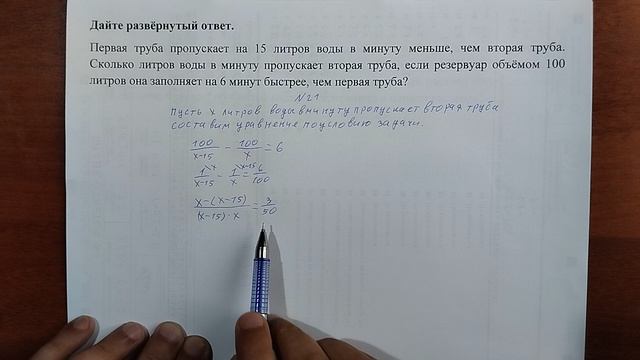 Дайте развёрнутый ответ.
Первая труба пропускает на 15 литров воды в минуту меньше, чем вторая труба.
Сколько литров воды в минуту пропускает вторая труба, если резервуар объёмом 100
литров она заполняет на 6 минут быстрее, чем первая труба?
N21
Пусть x литров воды в минуту пропускает вторая труба
составим уравнение по условию задачи.
100/(x-15) - 100/x = 6
1\x/(x-15) - 1\x-15/x = 6/100
(x-(x-15))/((x-15)·x) = 3/50